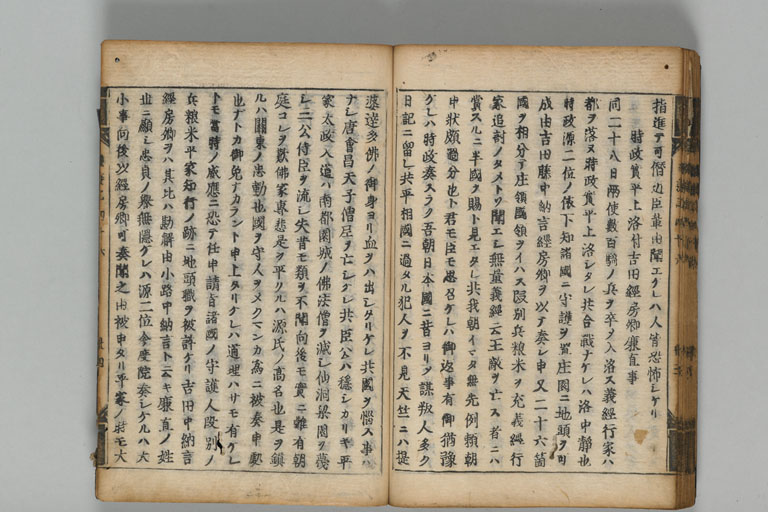 指進テ可僣上臣輩由聞エケレハ人皆恐怖シケリ
時政實平上洛付吉田經房卿廉直事
同二十八日両使數百騎ノ兵ヲ卒ク入洛ス義經行家ハ
都ヲ落ヌ時政實平上洛シタレ共合戰ナケレハ洛中静也
時政源二位ノ依下知諸國ニ守護ヲ置庄園ニ地頭ヲ可
成由吉田藤中納言經房卿ヲ以テ奏シ申又二十六箇
國ヲ相分テ庄領國領ヲイハス段別兵粮米ヲ充義經行
家追討ノタメトソ聞エシ無量義經云王敵ヲ亡ス者ニハ
賞スルニ半國ヲ賜ト見エタレ共我朝イマタ無先例頼朝
申狀頗過分也ト君モ臣モ思召ケレハ御返事有御猶豫
ケレハ時政奏スラク吾朝日本國ニ昔ヨリ謀叛人多ク
日記ニ留レ共平相國ニ過タル犯人ヲ不見天竺ニハ提
婆達多佛ノ御身ヨリ血ヲハ出シタリケレ共國ヲ惱ス事ハ
ナシ唐會昌天子僧尼ヲ亡シケレ共臣公ハ穩シカリキ平
家太政入道ハ南都園城ノ佛法僧ヲ滅シ仙洞梁園ヲ褻
シ二公侍臣ヲ流シ失昔モ類ヲ不聞向後モ實ニ難有朝
庭コレヲ歎佛家專悲是ヲ平クルハ源氏ノ高名也是ヲ鎮
ルハ關東ノ忠勤也國ヲ守人ヲメクマンカ為ニ被奏申契
也ナトカ御免ナカラント申上タリケレハ道理ハサモ有ケレ
トモ當時ノ威應ニ恐テ任申請旨諸國ノ守護人段別ノ
兵粮米平家知行ノ跡ニ地頭職ヲ被許ケリ吉田中納言
經房卿ヲハ其比ハ勘解由小路中納言ト云キ廉直ノ姓
世ニ顯シ忠貞ノ譽無隱ケレハ源二位今度院奏シケルハ大
小事向後以經房卿可奏聞之由被申タリ平家ノ時モ大